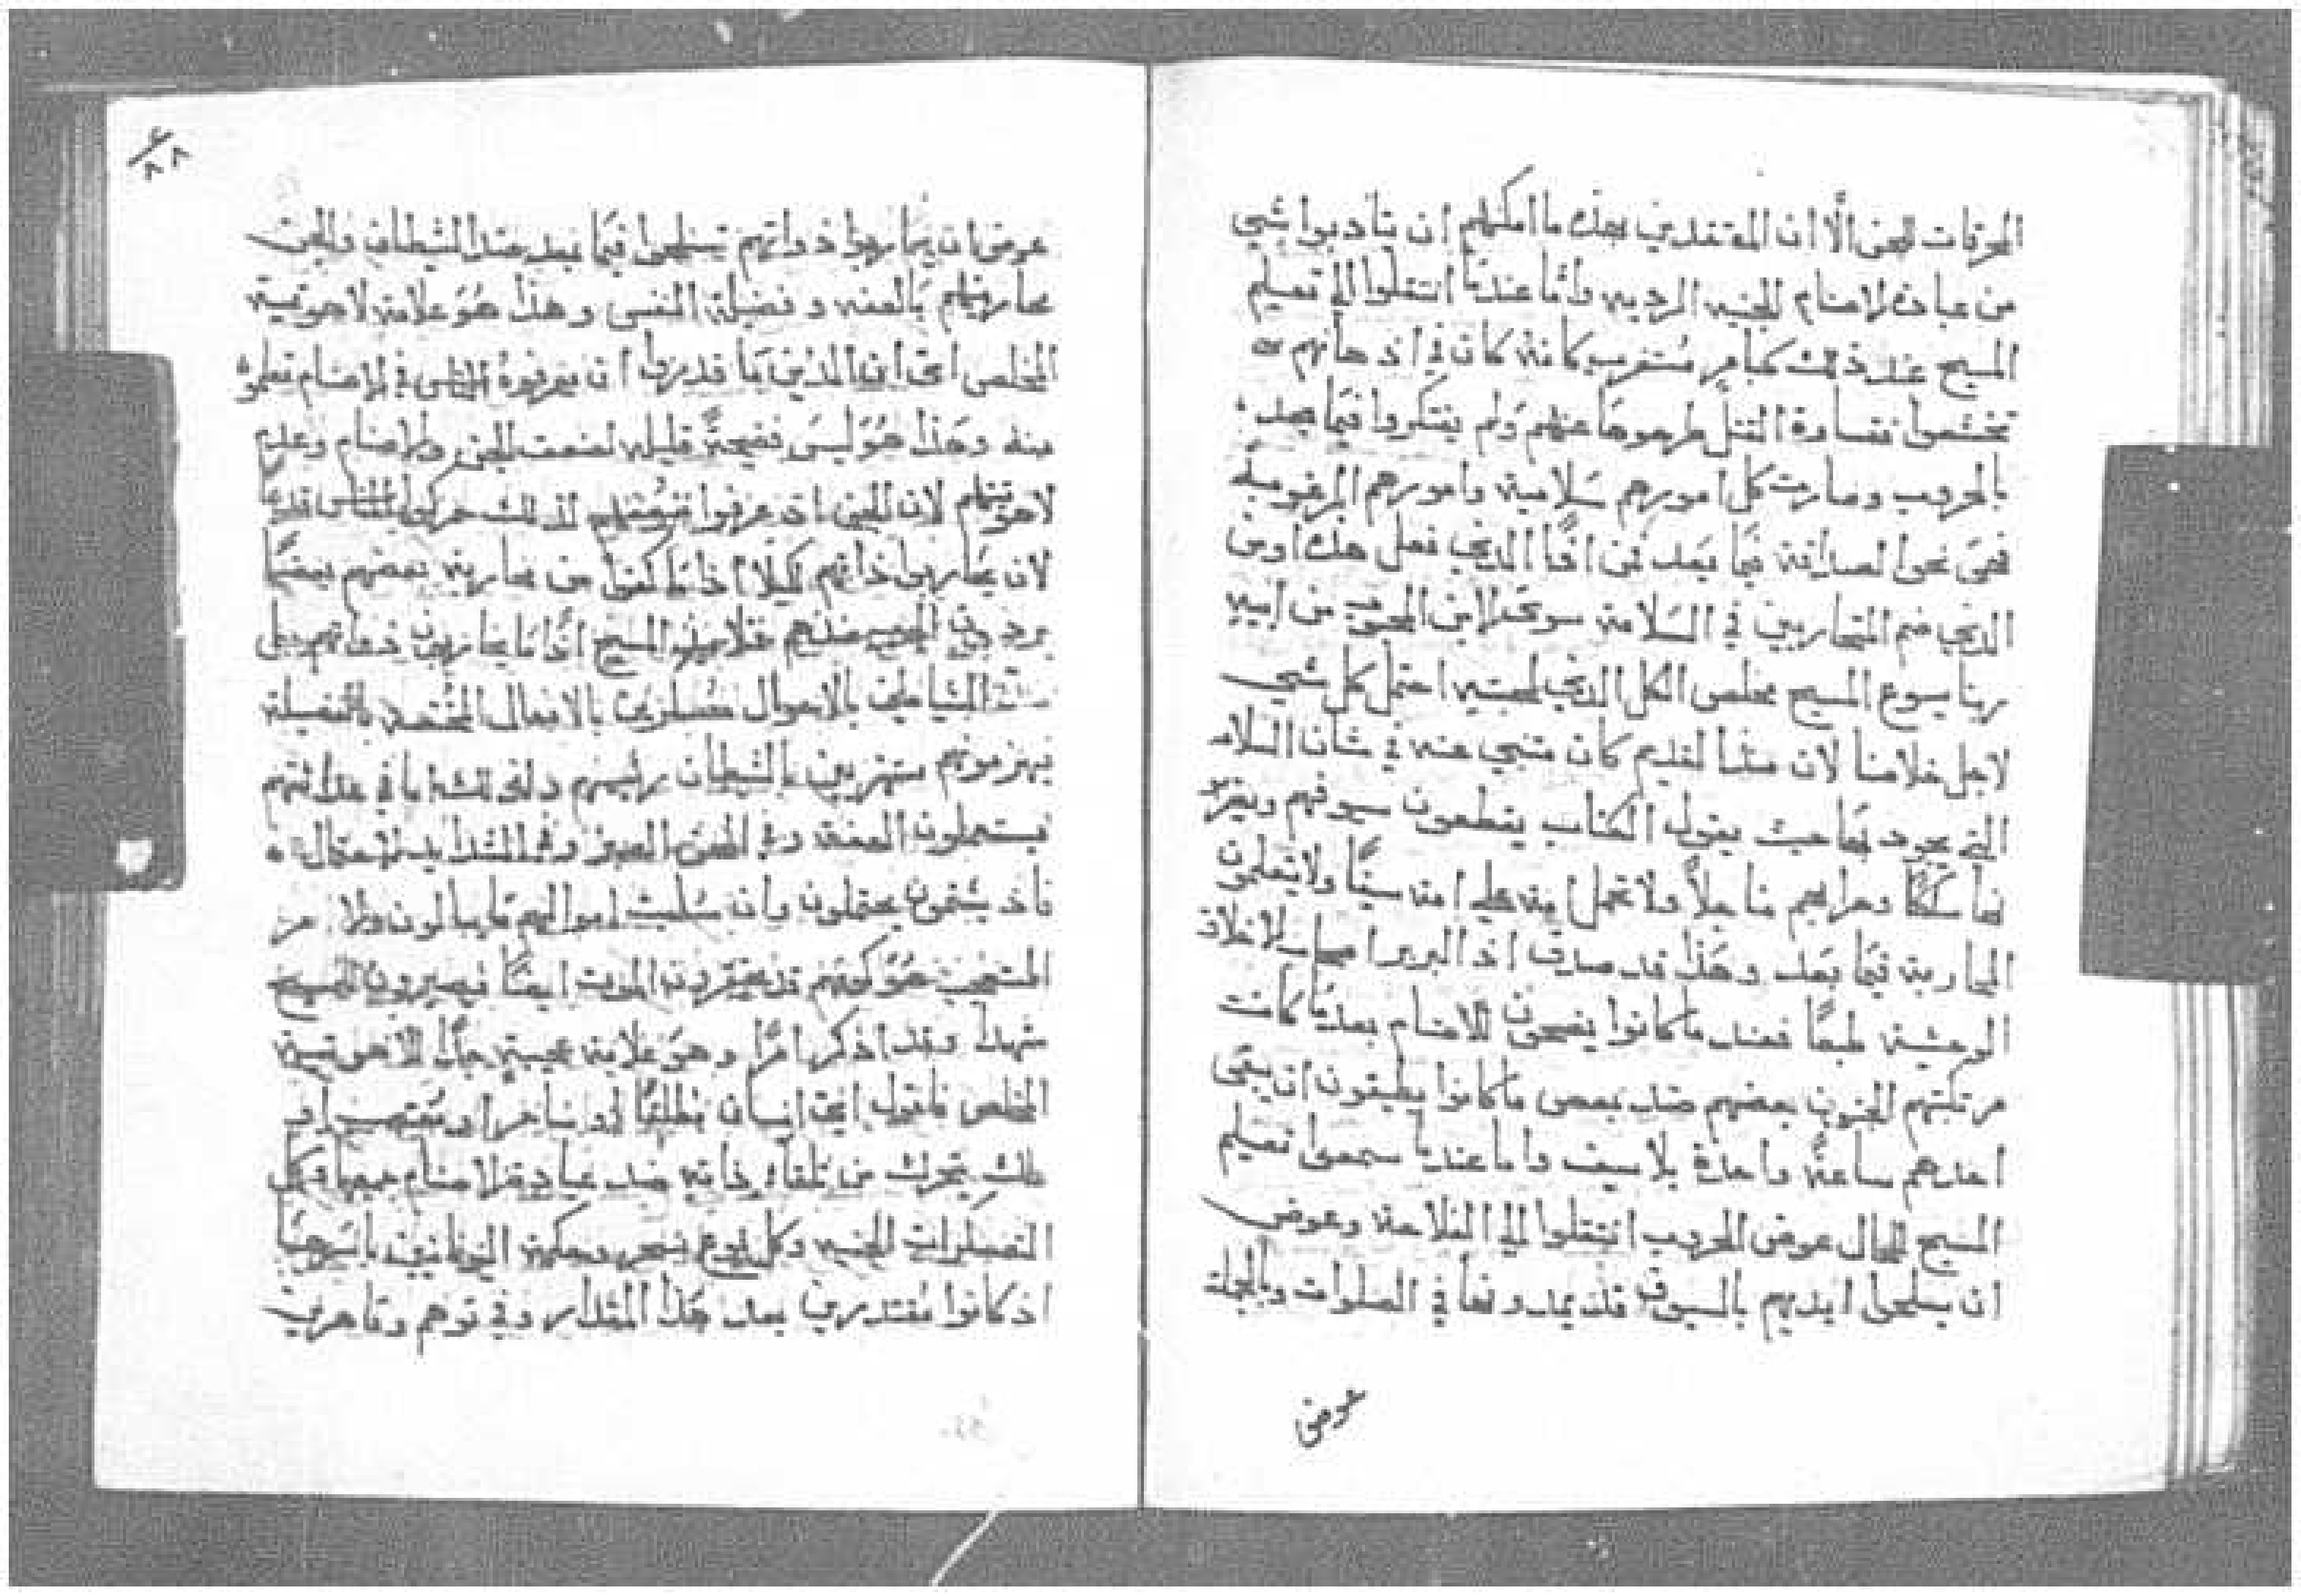 المحرقات للجن الا ان المعتقدين بهذه ما امكنهم ان يتادبوا بشي
من عبادة الاصنام الجنيه الرديه واما عندما انتقلوا الي تعليم
المسيح عند ذلك كبامر مستغرب كانه كان في اذهانهم
تخشعوا فقساوة القتل طرحوها عنهم ولم يفتكروا فيما بعد
بالحروب وصارت كل امورهم سلامية وامورهم المرغوبة
فهي نحوا لصداقة فيما بعد فمن اذًا الذي فعل هذه او من
الذي ضم المتحاربين في السلامة سوي الابن المحبوب من ابيه
ربنا يسوع المسيح مخلص الكل الذي لمحبته احتمل كل شي
لاجل خلاصنا لان منذ القديم كان متنبي عنه في شان السلام
التي يجود بها حيث يقول الكتاب يقطعون سيوفهم
سككًا وحرابهم مناجلاً ولا تحمل امة علي امة سيفًا ولا يتعلمون
المحاربة فيما بعد وهذا قد صدق اذ البربر اصحاب الاخلاق
الوحشية طبعًا فعند ما كانوا يضحون للاصنام بعدما كانت
مرتكبتهم الجنون بعضهم ضد بعض ما كانوا يطيقون ان يبقي
احدهم ساعة واحدة بلا سيف واما عندما سمعوا تعليم
المسيح للحال عوض الحروب انتقلوا الي الفلاحة وعوض
ان يسلحوا ايديهم بالسيوف قد يمدونها في الصلوات وبالجملة
عوض
٨٨
عوض ان يحاربوا ذواتهم تسلحوا فيما بعد ضد الشيطان والجن
محاربينهم بالعفه وفضيلة النفس وهذا هو علامة لاهوتية
المخلص اعني ان الذين ما قدروا ان يعرفوه الناس في الاصنام تعلموه
منه وهذا هو ليس فضيحةً قليله لضعف الجن والاصنام وعدم
لاهوتيتهم لان الجن اذ عرفوا ضعفهم لذلك حركوا الناس قديمًا
لان يحاربوا ذاتهم لكيلا اذا ما كفوا من محاربة بعضهم بعضًا
يردون الحرب ضدهم فتلاميذ المسيح اذا ما يحاربون ذواتهم بل
الشياطين بالاحوال بالافعال المختصه بالفضيلة
فيهزمونهم مستهزيين بالشيطان رئيسهم ولذلك اما في حداثتهم
فيستعملون العفة وفي المحن الصبر وفي الشدايد الاحتمال
فاذ يشتمون يحتملون وان سُلبت اموالهم ما يبالون
المتعجب هو كونهم قد يحتقرون الموت ايضًا فيصيرون للمسيح
شهدا وقد اذكر امرًا وهو علامة عجيبة جدًا للاهوتية
المخلص فاقول اي انسان مطلقًا او ساحرًا او مغتصب او
ملك تحرك من تلقاء ذاته ضد عبادة الاصنام جميعها وكل
التعسكرات الجنيه وكل نوع سحر وحكمة اليونانيين باسرهما
اذ كانوا مقتدرين بعد هذا المقدار وفي نوهم وقاهرين